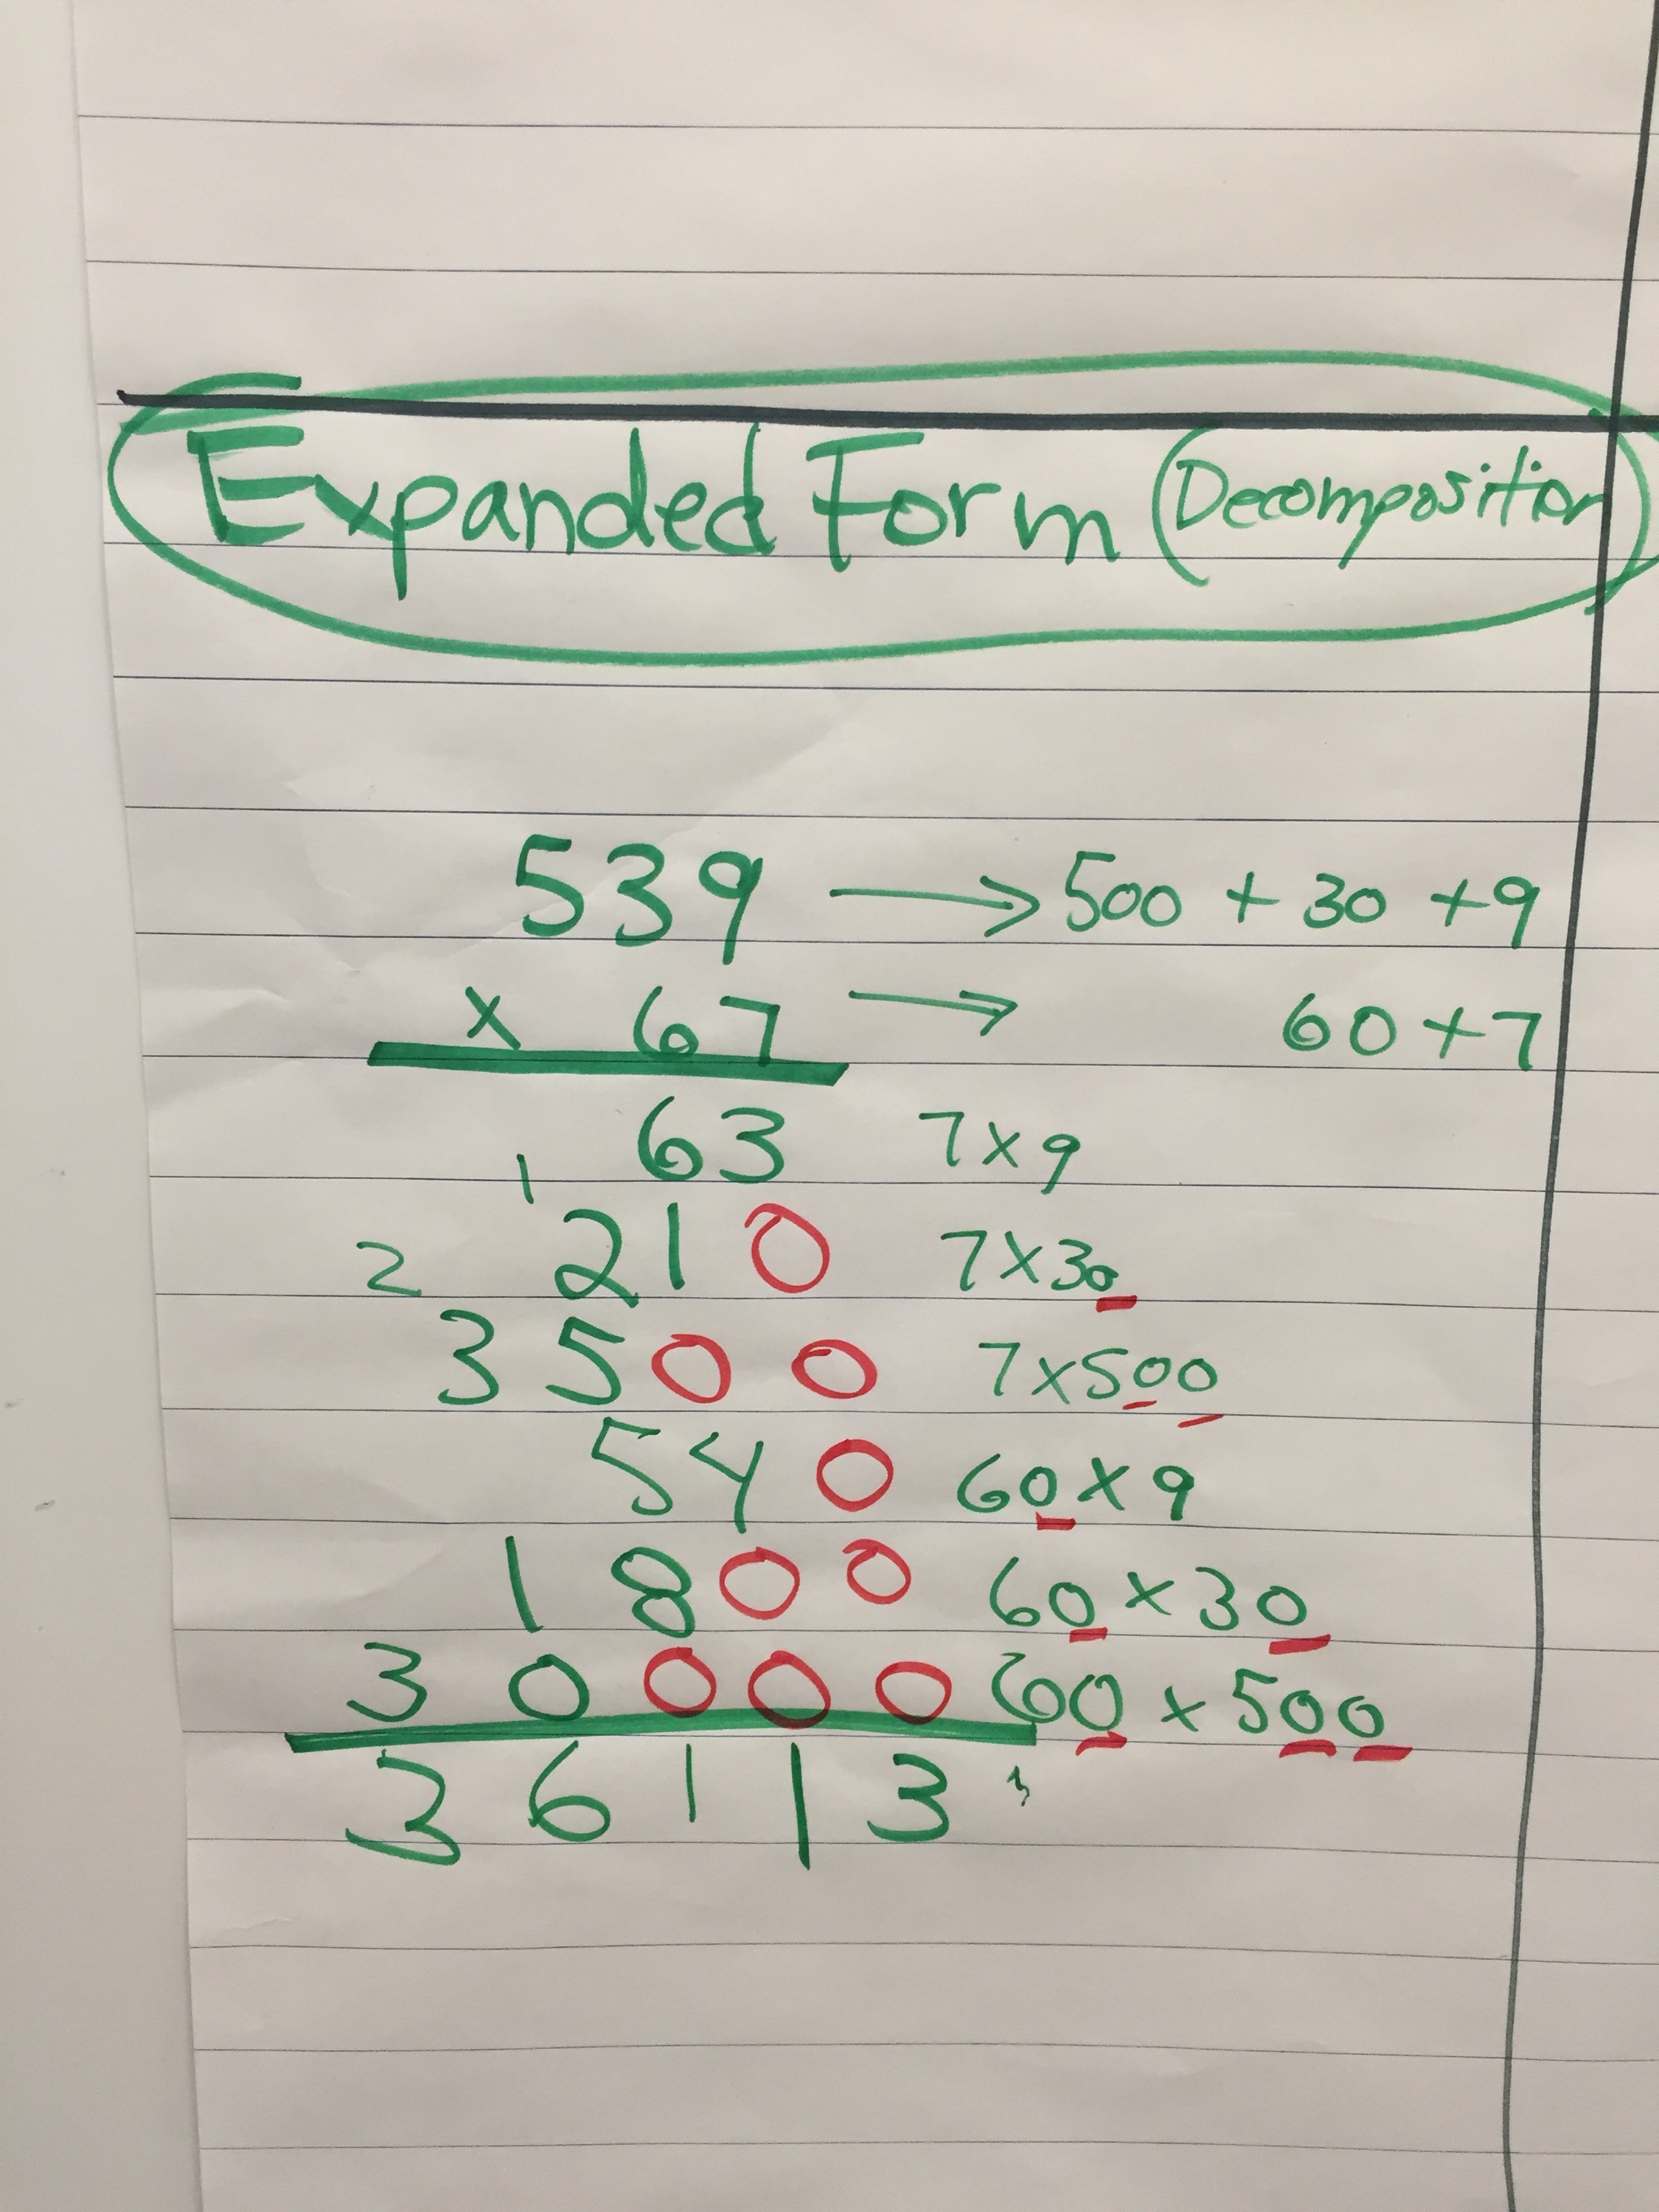 Expanded Form (Decomposition)
539 → 500 + 30 + 9
x 67 → 60 + 7
63 7 x 9
1
210 7 x 30
2
3500 7 x 500
540 60 x 9
1800 60 x 30
30000 60 x 500
36113